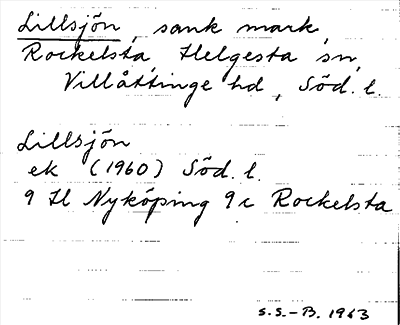 Lillsjön, sank mark,
Rockelsta, Helgesta sn,
Villåttinge hd, Söd. l.
Lillsjön
ek (1960) Söd. l.
9 H Nyköping 9c Rockelsta
S.S.-B. 1963